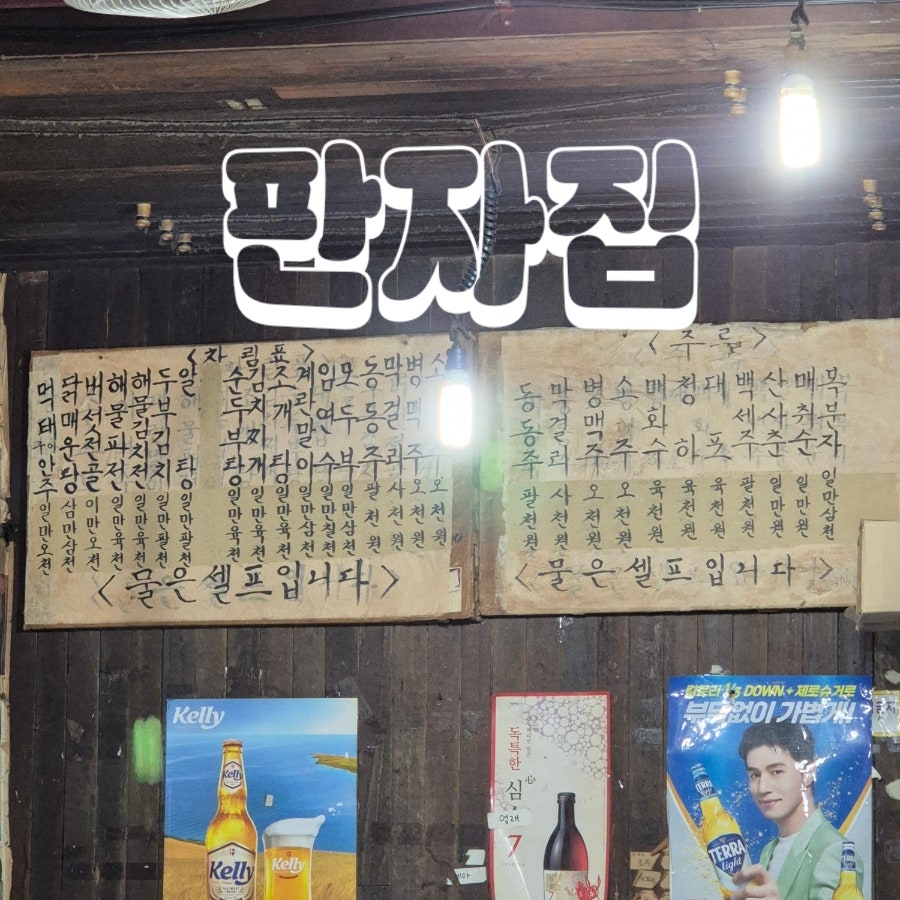 판자집
<차림표>
소주 오천원
병맥주 오천원
막걸리 사천원
동동주 팔천원
모두부 일만삼천
임연수 일만칠천
계란말이 일만삼천
조개탕 일만육천
김치찌개 일만육천
순두부탕 일만육천
알탕 일만팔천
두부김치 일만육천
해물김치전 일만육천
해물파전 일만육천
버섯전골 이만오천
닭매운탕 삼만삼천
먹태구이안주 일만오천
<물은 셀프입니다>
<주류>
동동주 팔천원
막걸리 사천원
병맥주 오천원
소주 오천원
매화수 육천원
청하 육천원
대포 육천원
백세주 팔천원
산사춘 일만원
매취순 일만원
복분자 일만삼천원
<물은 셀프입니다>
Kelly
Kelly
Kelly
Kelly
독특한
심心
7
칼로리 1/3 DOWN + 제로슈거로
부담없이 가볍게!
TERRA
TERRA
Light